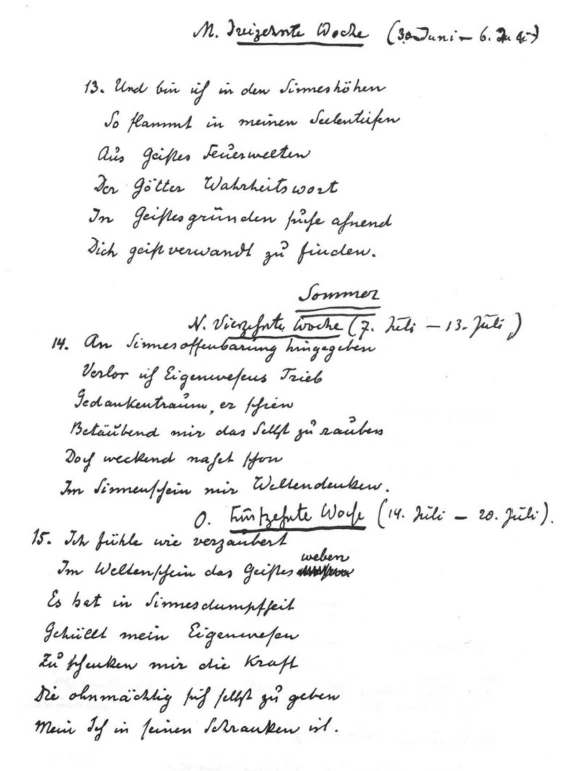 M. Dreizehnte Woche (30. Juni – 6. Juli)
13. Und bin ich in den Sinneshöhen
So flammt in meinen Seelentiefen
Aus Geistes Feuerwelten
Der Götter Wahrheitswort
In Geistesgründen suche ahnend
Dich geistverwandt zu finden.
Sommer
N. Vierzehnte Woche (7. Juli – 13. Juli)
14. An Sinnesoffenbarung hingegeben
Verlor ich Eigenwesens Trieb
Gedankentraum, er schien
Betäubend mir das Selbst zu rauben
Doch weckend nahet schon
Im Sinnenschein mir Weltendenken.
O. Fünfzehnte Woche (14. Juli – 20. Juli).
15. Ich fühle wie verzaubert
Im Weltenschein das Geistesweben
Es hat in Sinnesdumpfheit
Gehüllt mein Eigenwesen
Zu schenken mir die Kraft
Die ohnmächtig sich selbst zu geben
Mein Ich in seinen Schranken ist.